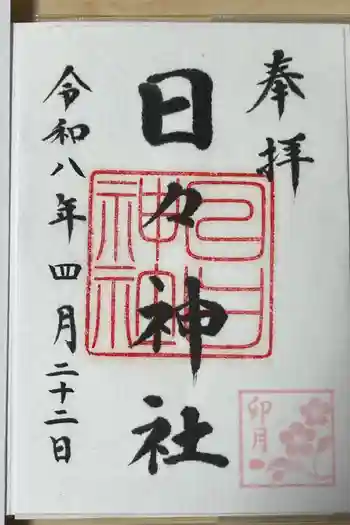 奉拝
日々神社
令和八年四月二十二日
日日神社
卯月